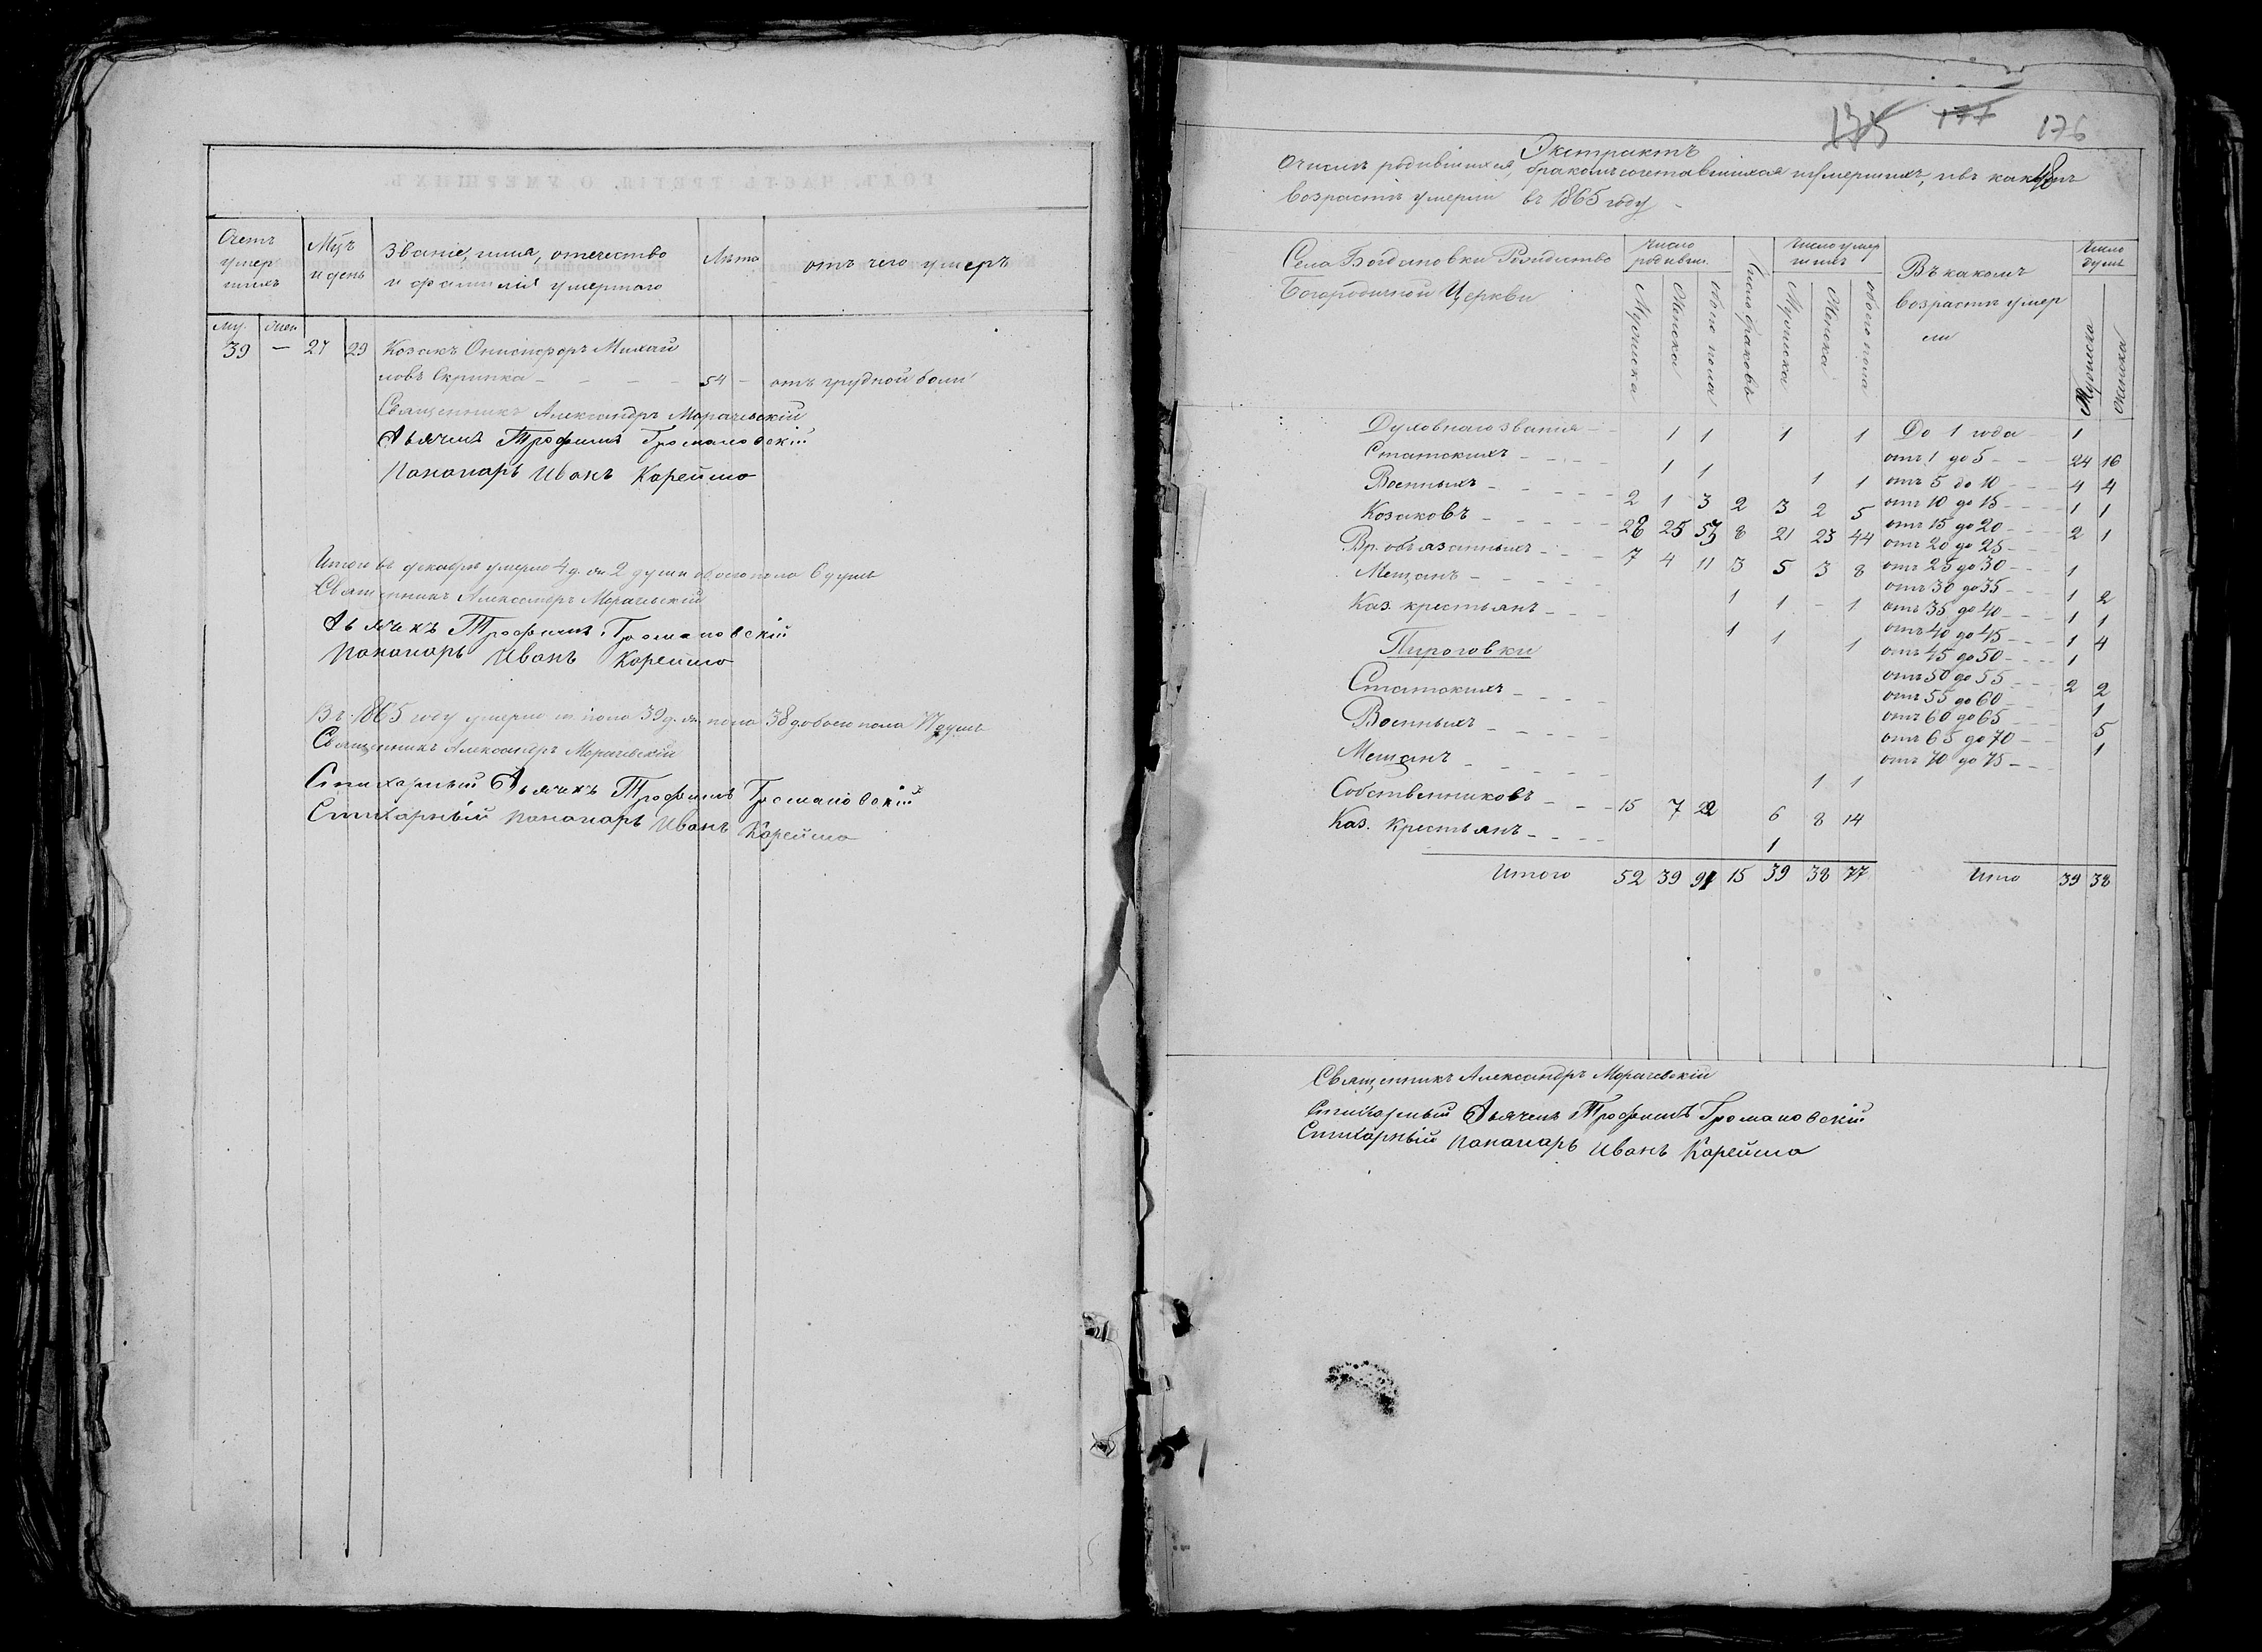 Счетъ умер шихъ
Мцъ и день
Званіе, имя, отчество и фамилія умершаго
Лѣта
отъ чего умеръ
му. жен
39 — 27 29 Козакъ Онисифоръ Михай
ловъ Скрипка - - - - 54 - отъ грудной боли
Священникъ Александръ Морачевскій
Дьячекъ Трофимъ Громановскій
Пономарь Иванъ Корейшо
Итого въ декабрѣ умерло 4 д. ж 2 души обоего пола 6 душъ
Священникъ Александръ Морачевскій
Дьячекъ Трофимъ Громановскій
Пономарь Иванъ Корейшо
Въ 1865 году умерло м пола 39 д. ж пола 38 д обоего пола 77 душъ
Священникъ Александръ Морачевскій
Стихарный Дьячекъ Трофимъ Громановскій
Стихарный Пономарь Иванъ Корейшо
175 177 176
Экстрактъ
О числѣ родившихся, бракомъ сочетавшихся и умершихъ, и въ какомъ
48
возрастѣ умерли въ 1865 году -
Села Богдановки Рождество
Богородичной Церкви
Число родивш.
Мужеска
Женска
обоего пола
Число браковъ
Число умер шихъ
Мужеска
Женска
обоего пола
Въ какомъ возрастѣ умер ли
Число душъ
Мужеска
Женска
Духовнаго званія - - 1 1 1 1
Статскихъ - - - - 1 1 1 1
Военныхъ - - - - - 2 1 3 2 3 2 5
Козаковъ - - - - - 28 25 53 8 21 23 44
Вр. обязанныхъ - - - 7 4 11 3 5 3 8
Мещанъ - - - - - 1 1 - 1
Каз. крестьянъ - - - 1 1 1
Пироговки
Статскихъ - - - -
Военныхъ - - - - -
Мещанъ - - - - - 1 1
Собственниковъ - - - 15 7 22 6 8 14
Каз. крестьянъ - - - - 1
Итого 52 39 91 15 39 38 77
До 1 года - - 1
отъ 1 до 5 - - - 24 16
отъ 5 до 10 - - - 4 4
отъ 10 до 15 - - - 1 1
отъ 15 до 20 - - - 2 1
отъ 20 до 25 - -
отъ 25 до 30 - - - 1
отъ 30 до 35 - - - 1 2
отъ 35 до 40 - - - 1 1
отъ 40 до 45 - - - 1 4
отъ 45 до 50 - - - - 1
отъ 50 до 55 - - - 2 2
отъ 55 до 60 - - 1
отъ 60 до 65 - - - 5
отъ 65 до 70 - - 1
отъ 70 до 75 - -
Итого 39 38
Священникъ Александръ Морачевскій
Стихарный Дьячекъ Трофимъ Громановскій
Стихарный Пономарь Иванъ Корейшо